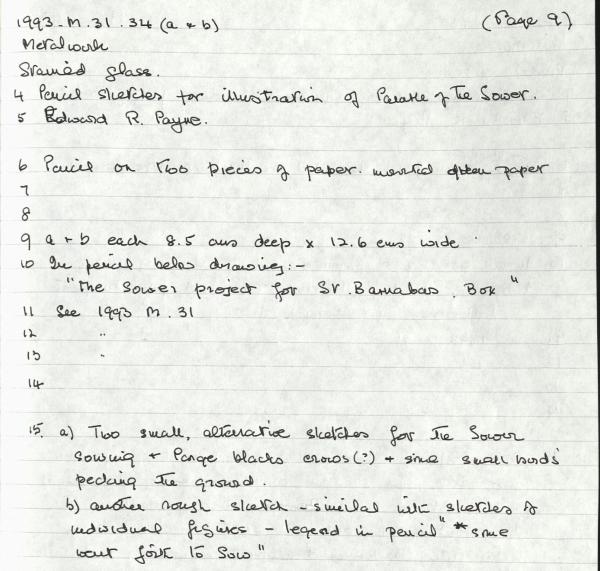 1993.M.31.34 (a + b) (Page 9)
Metalwork
Stained glass.
4 Pencil sketches for illustration of Parable of The Sower.
5 Edward R. Payne.
6 Pencil on two pieces of paper. mounted paper
7
8
9 a + b each 8.5 cms deep x 12.6 cms wide
10 In pencil below drawing:-
"The Sower project for St. Barnabas. Box"
11 See 1993 M.31
12 "
13 "
14
15. a) Two small, alternative sketches for the Sower
sowing + large blacks crows(?) + some small birds
pecking the ground.
b) another rough sketch - similar with sketches of
individual figures - legend in pencil "* some
went forth to sow"